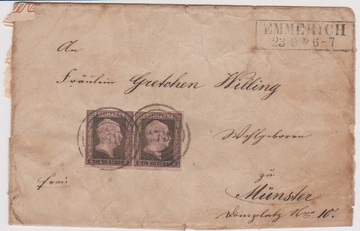 EMMERICH
23 9 6-7
An
Fräulein Gretchen Willing
Wohlgeboren
zu
frei
Münster
Domplatz Nro 10.